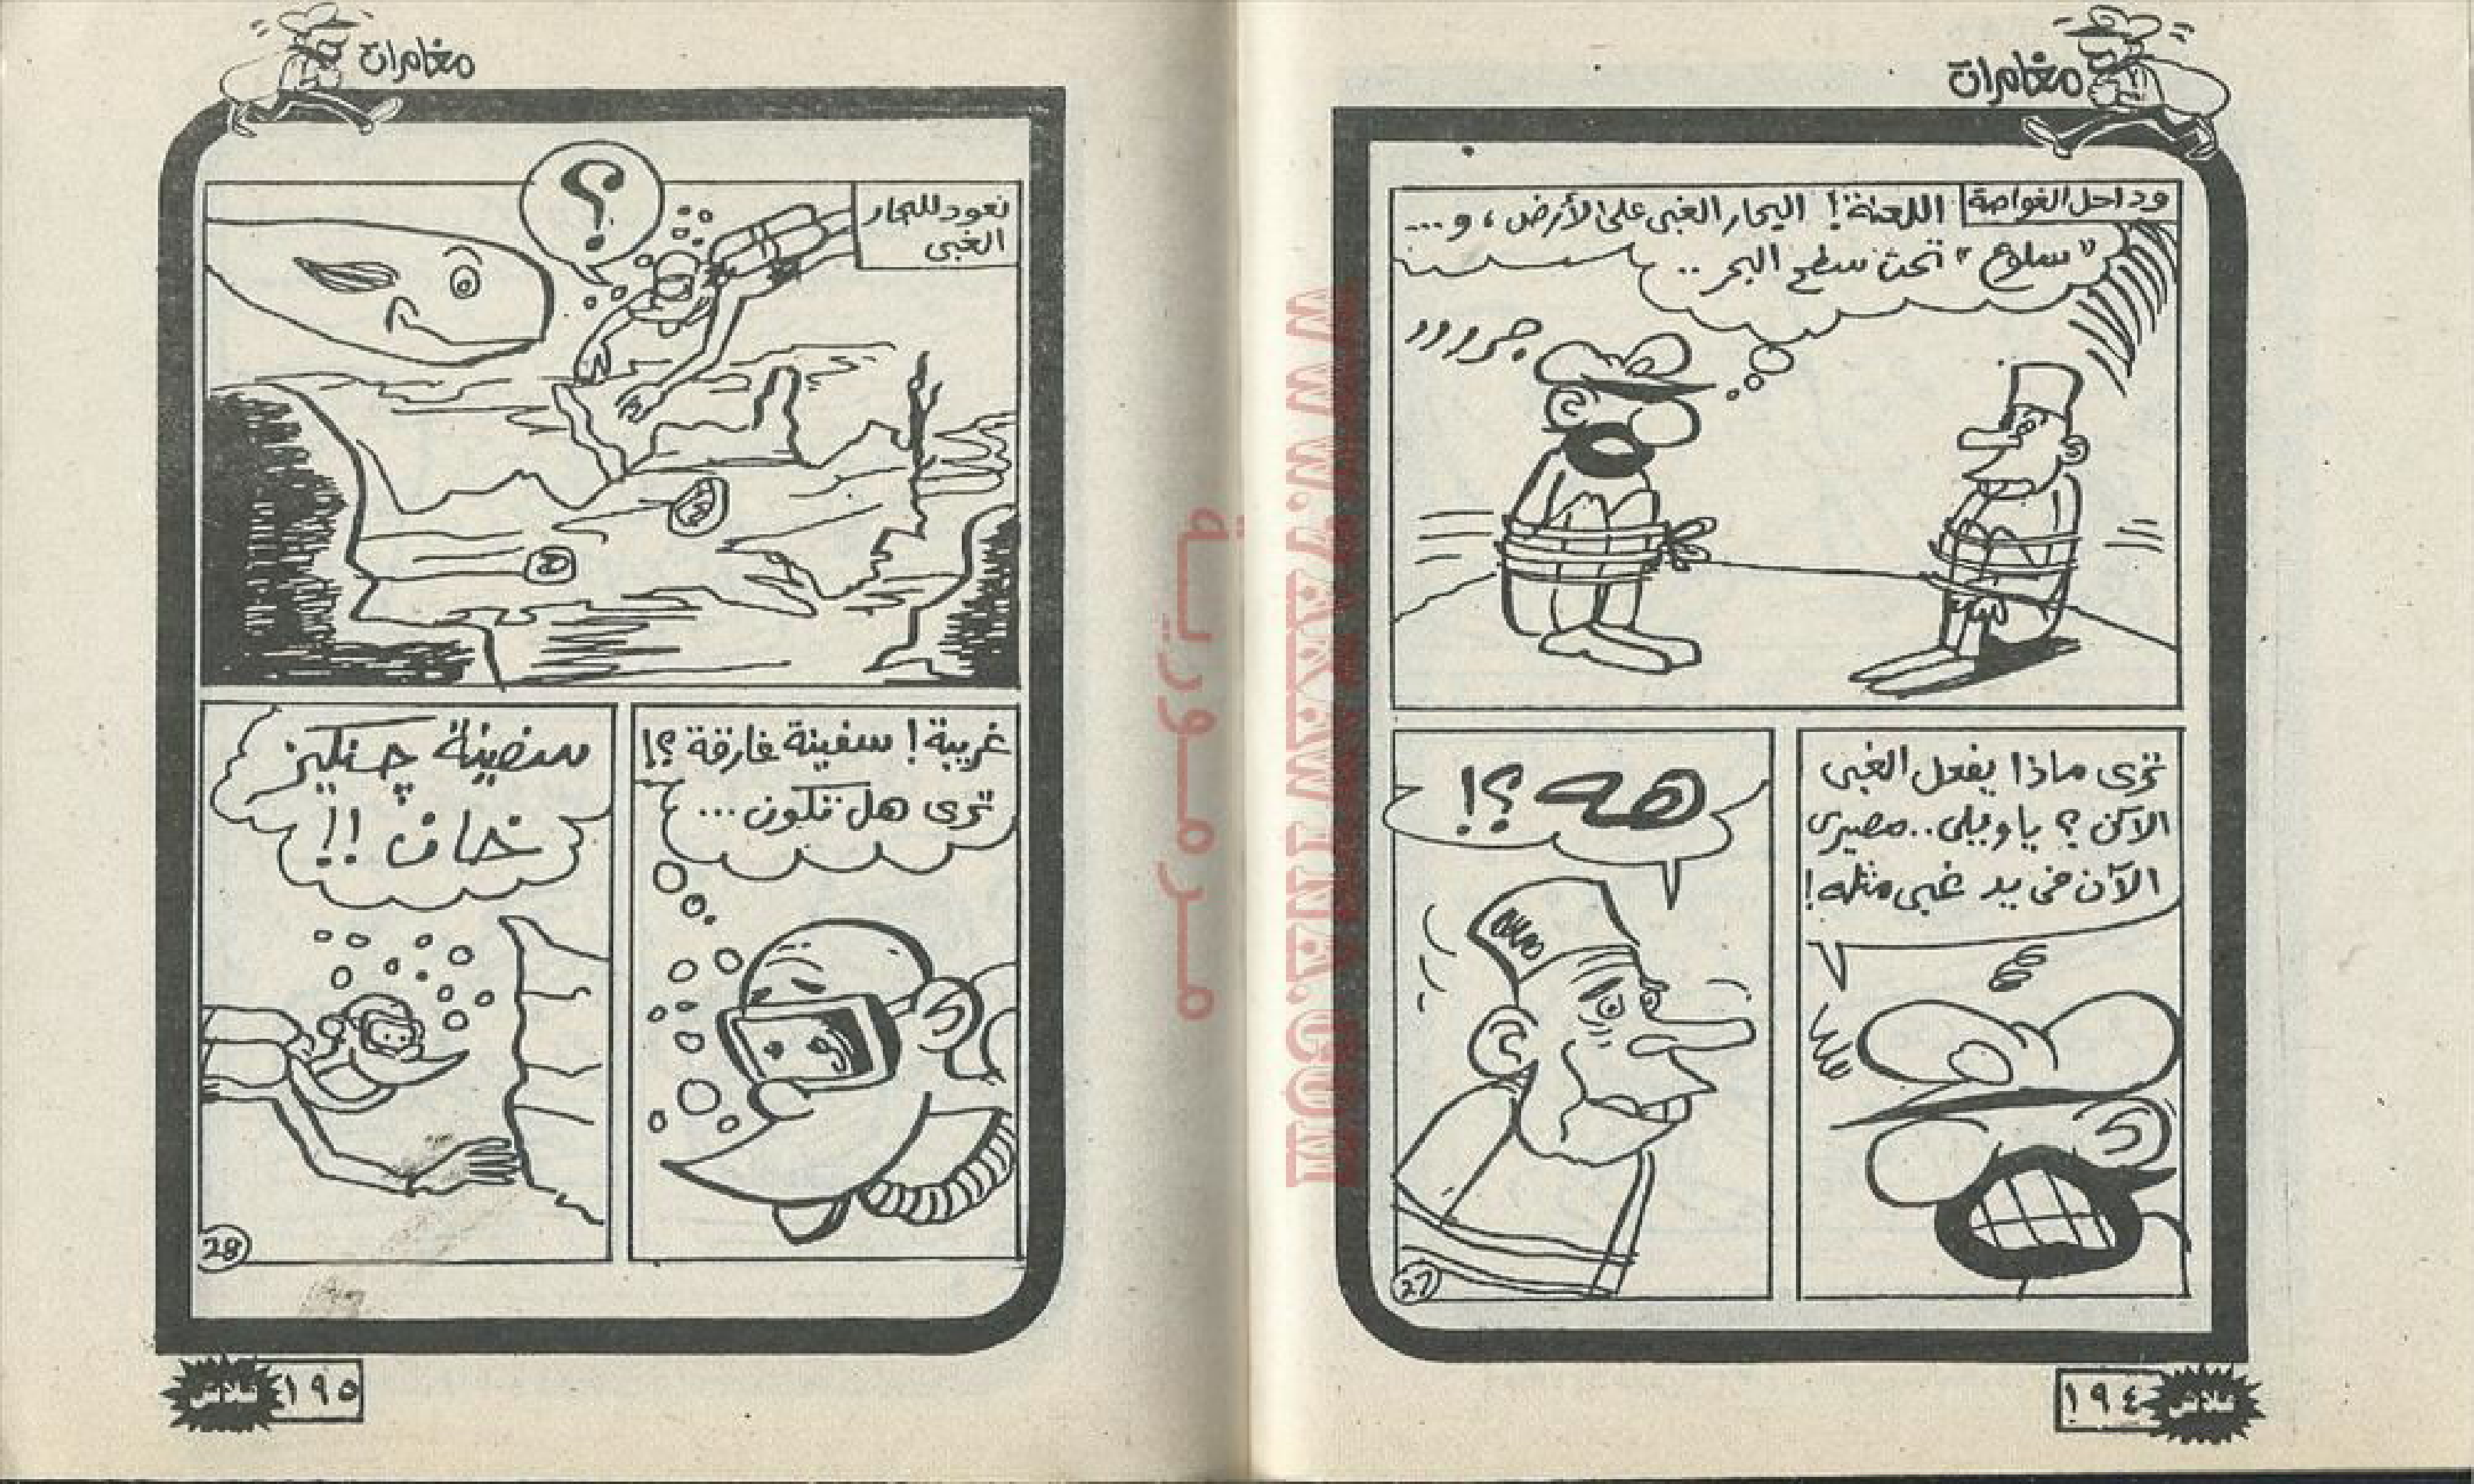 مغامرات
وداخل الغواصة
اللعنة! البحار الغبى على الأرض، و...
"سلوع" تحت سطح البحر ..
جرررر
ترى ماذا يفعل الغبى
الآن ؟ ياويلى.. مصيرى
الآن فى يد غبى مثله!
هه ؟!
27
١٩٤
فلاش
مغامرات
نعود للبحار
الغبى
؟
غريبة! سفينة غارقة ؟!
ترى هل تكون ...
سفينة چنكيز
خان !!
28
١٩٥
فلاش
مرمورية